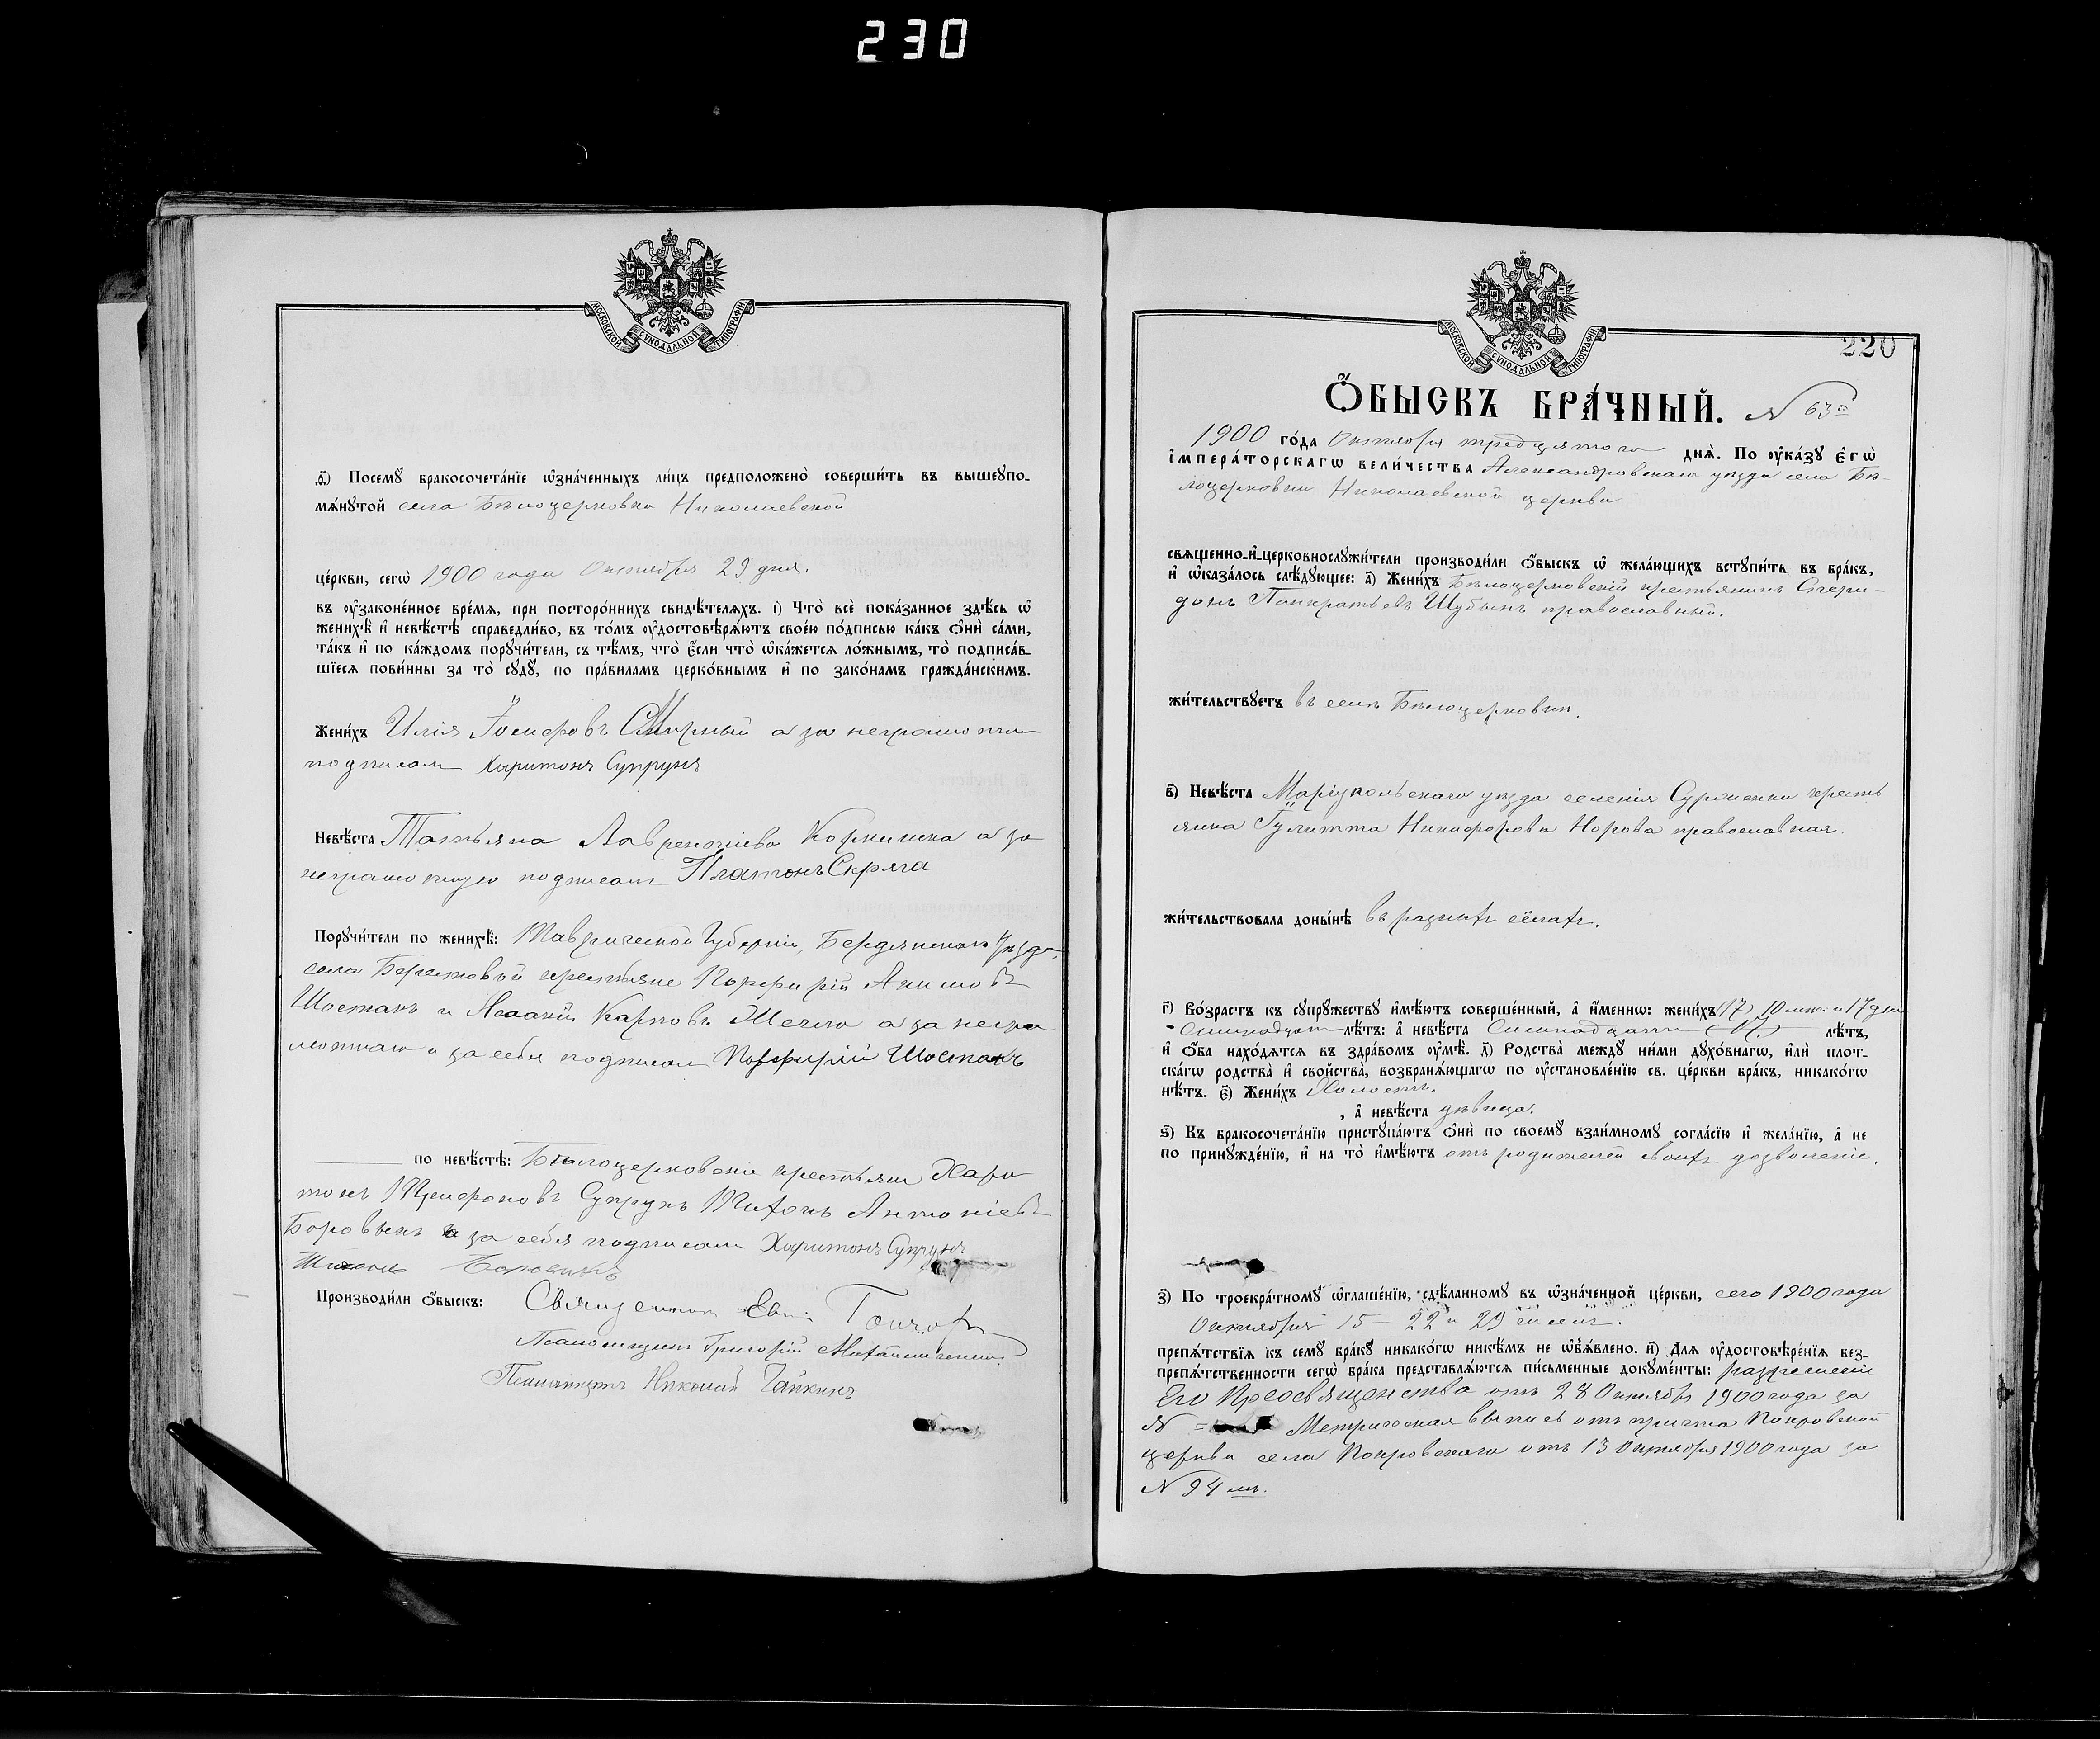 230
МОСКОВСКОЙ СѴНОДАЛЬНОЙ ТИПОГРАФІИ
ѳ҃) Посемꙋ бракосочета́нїе ѡ҆зна́ченныхъ ли́цъ предположено̀ соверши́ть въ вышеꙋпо-
мѧ́нꙋтой села Бѣлоцерковки Николаевской
це́ркви, сегѡ̀ 1900 года Октября 29 дня.
въ ᲂу҆зако́ненное вре́мѧ, при посторо́ннихъ свидѣ́телѧхъ. і҃) Что̀ всѐ пока́занное здѣ́сь ѡ҆
женихѣ̀ и҆ невѣ́стѣ справедли́во, въ то́мъ ᲂу҆достовѣрѧ́ютъ свое́ю по́дписью ка́къ ѻ҆нѝ са́ми,
та́къ и҆ по ка́ждомъ порꙋчи́тели, съ тѣ́мъ, что̀ є҆́сли что̀ ѡ҆ка́жетсѧ ло́жнымъ, то̀ подписа́в-
шїесѧ пови́нны за то̀ сꙋдꙋ̀, по пра́виламъ церко́внымъ и҆ по зако́намъ гражда́нскимъ.
Жени́хъ Илія Іосифовъ Смирный а за неграмотн
подписался Харитонъ Супрунъ
Невѣ́ста Татьяна Лаврентіева а за
неграмотную подписалъ Платонъ Скряга
Порꙋчи́тели по женихѣ̀: Таврической Губерніи, Бердянскаго Уѣзда,
села Берестовой крестьяне Порфирій Акимовъ
Шостакъ и Исаакій Карповъ а за негра
мотнаго и за себя подписался Порфирій Шостакъ
по невѣ́стѣ: Бѣлоцерковскіи крестьяни Хари
тонъ Супрунъ Тихонъ Антоніевъ
Боровыкъ а за себя подписали Харитонъ Супрунъ
Тихонъ Боровикъ
Производи́ли ѻ҆́быскъ: Священникъ
Псаломщикъ Григорій Михайличенко
Псаломщикъ Николай Чайкинъ
МОСКОВСКОЙ СѴНОДАЛЬНОЙ ТИПОГРАФІИ
220
Ѻ҆́БЫСКЪ БРА́ЧНЫЙ. N 63й
1900 го́да Октября тридцятого днѧ̀. По ᲂу҆ка́зꙋ Є҆гѡ̀
і҆мпера́торскагѡ вели́чества Александровскаго уѣзда села Бѣ-
лоцерковки Николаевской церкви
свѧщенно-и҆-церковнослꙋжи́тели производи́ли ѻ҆́быскъ ѡ҆ жела́ющихъ встꙋпи́ть въ бра́къ,
и҆ ѡ҆каза́лось слѣ́дꙋющее: а҃) Жени́хъ Бѣлоцерковскій крестьянинъ Спери-
донъ Панкратьевъ Шубынъ православный.
жи́тельствꙋетъ въ селѣ Бѣлоцерковки.
в҃) Невѣ́ста Маріупольскаго уѣзда селенія Сурженки кресть
янка Гулитта Никифорова Норова православная.
жи́тельствовала доны́нѣ въ разныхъ селахъ.
г҃) Во́зрастъ къ сꙋпрꙋ́жествꙋ и҆мѣ́ютъ соверше́нный, а҆ и҆́менно: жени́хъ (17) 10 мѣс. и 17 дн
Семнадцат лѣ́тъ: а҆ невѣ́ста Семнадцати (17) лѣ́тъ,
и҆ ѻ҆́ба нахо́дѧтсѧ въ здра́вомъ ᲂу҆мѣ̀. д҃) Родства̀ междꙋ̀ ни́ми дꙋхо́внагѡ, и҆лѝ плот-
ска́гѡ родства̀ и҆ свойства̀, возбранѧ́ющагѡ по ᲂу҆становле́нїю св. це́ркви бра́къ, никако́гѡ
нѣ́тъ. є҃) Жени́хъ Холостъ.
, а҆ невѣ́ста дѣвица.
ѕ҃) Къ бракосочета́нїю пристꙋпа́ютъ ѻ҆нѝ по своемꙋ̀ взаи́мномꙋ согла́сїю и҆ жела́нїю, а҆ не
по принꙋжде́нїю, и҆ на то̀ и҆мѣ́ютъ отъ родителей своихъ дозволеніе.
з҃) По троекра́тномꙋ ѡ҆глаше́нїю, сдѣ́ланномꙋ въ ѡ҆зна́ченной це́ркви, сего 1900 года
Октября 15 – 22 и 29 чиселъ.
препѧ́тствїѧ къ семꙋ̀ бра́кꙋ никако́гѡ никѣ́мъ не ѡ҆б̾ѧ́влено. и҃) Длѧ ᲂу҆достовѣре́нїѧ без-
препѧ́тственности сегѡ̀ бра́ка представлѧ́ютсѧ пи́сьменные докꙋме́нты: разрешеніе
Его Преосвященства отъ 28 Октября 1900 года за
N = Метрическая выпись отъ причта Покровской
церкви села Покровскаго отъ 13 Октября 1900 года за
N 94 мъ.